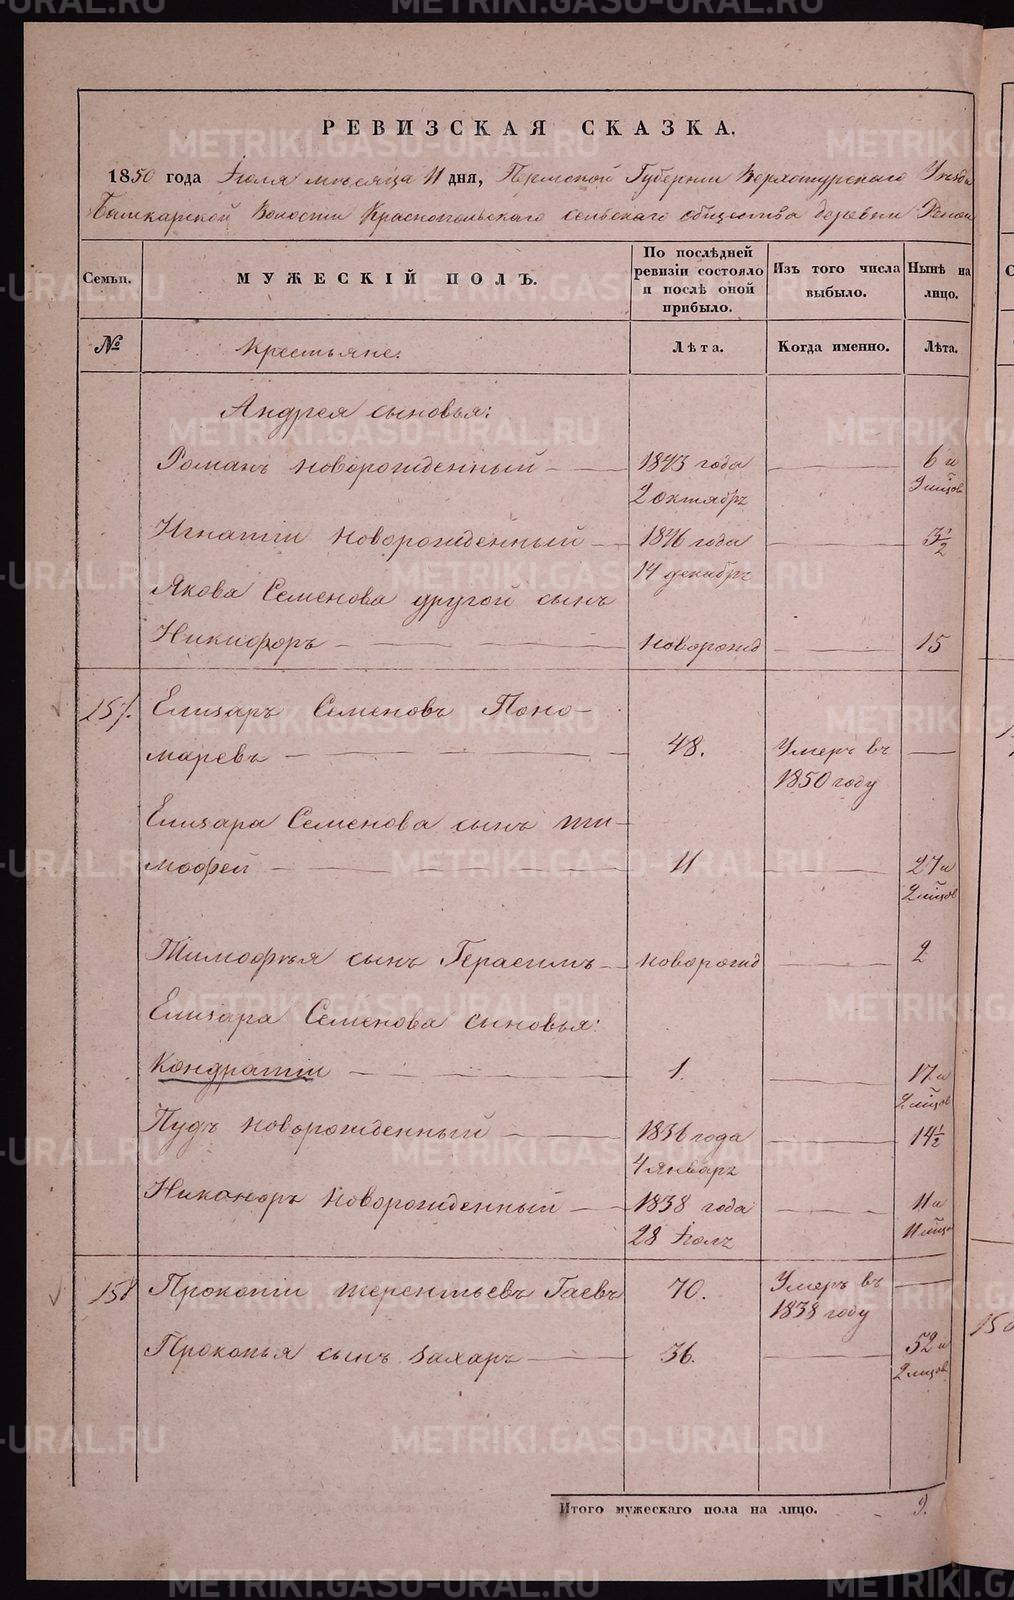 РЕВИЗСКАЯ СКАЗКА.
1850 года Іюля мѣсяца 11 дня, Пермской Губерніи Верхотурскаго Уѣзда
Башкарской Волости Краснопольскаго сельскаго общества деревни
Семьи. МУЖЕСКІЙ ПОЛЪ. По послѣдней ревизіи состояло и послѣ оной прибыло. Изъ того числа выбыло. Нынѣ на лицо.
№ Крестьяне. Лѣта. Когда именно. Лѣта.
Андрея сыновья:
Романъ новорожденный 1843 года 6 и
2 октябръ 9 мѣсцов
Игнатіи новорожденный 1846 года 3½
14 декабръ
Якова Семенова другой сынъ
Никифоръ новорожд 15
157. Елизаръ Семеновъ Поно-
маревъ 48. Умеръ въ
1850 году
Елизара Семенова сынъ Ти-
мофеи 11 27 и
2 мѣсцов
Тимофѣя сынъ Герасимъ новорожд 2
Елизара Семенова сыновья:
Кондратіи 1. 17 и
2 мѣсцов
Пудъ новорожденный 1836 года 14½
4 январъ
Никаноръ новорожденный 1838 года 11 и
28 Іюлъ 11 мѣсцо
158 Прокопіи Терентьевъ Гаевъ 70. Умеръ въ
1838 году
Прокопья сынъ Захаръ 36. 52 и
2 мѣсцов
Итого мужескаго пола на лицо. 9.
METRIKI.GASO-URAL.RU